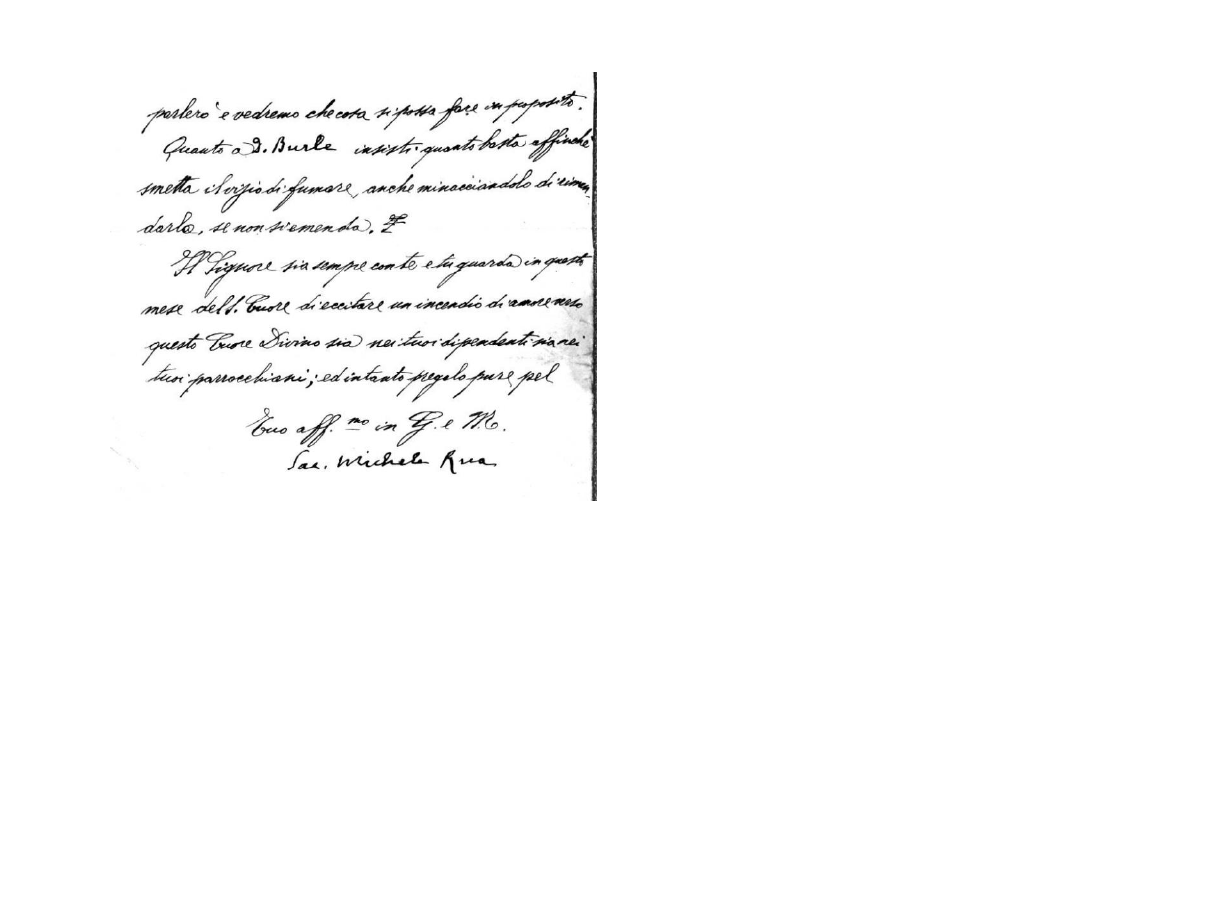 parlerò e vedremo che cosa si possa fare in proposito.
Quanto a D. Burle insisti quanto basta affinchè
smetta il vizio di fumare, anche minacciandolo di riman-
darlo, se non si emenda.
Il Signore sia sempre con te e tu guarda in questo
mese del S. Cuore di eccitare un incendio di amore verso
questo Cuore Divino sia nei tuoi dipendenti sia nei
tuoi parrocchiani; ed intanto pregalo pure pel
Tuo aff.mo in G. e M.
Sac. Michele Rua